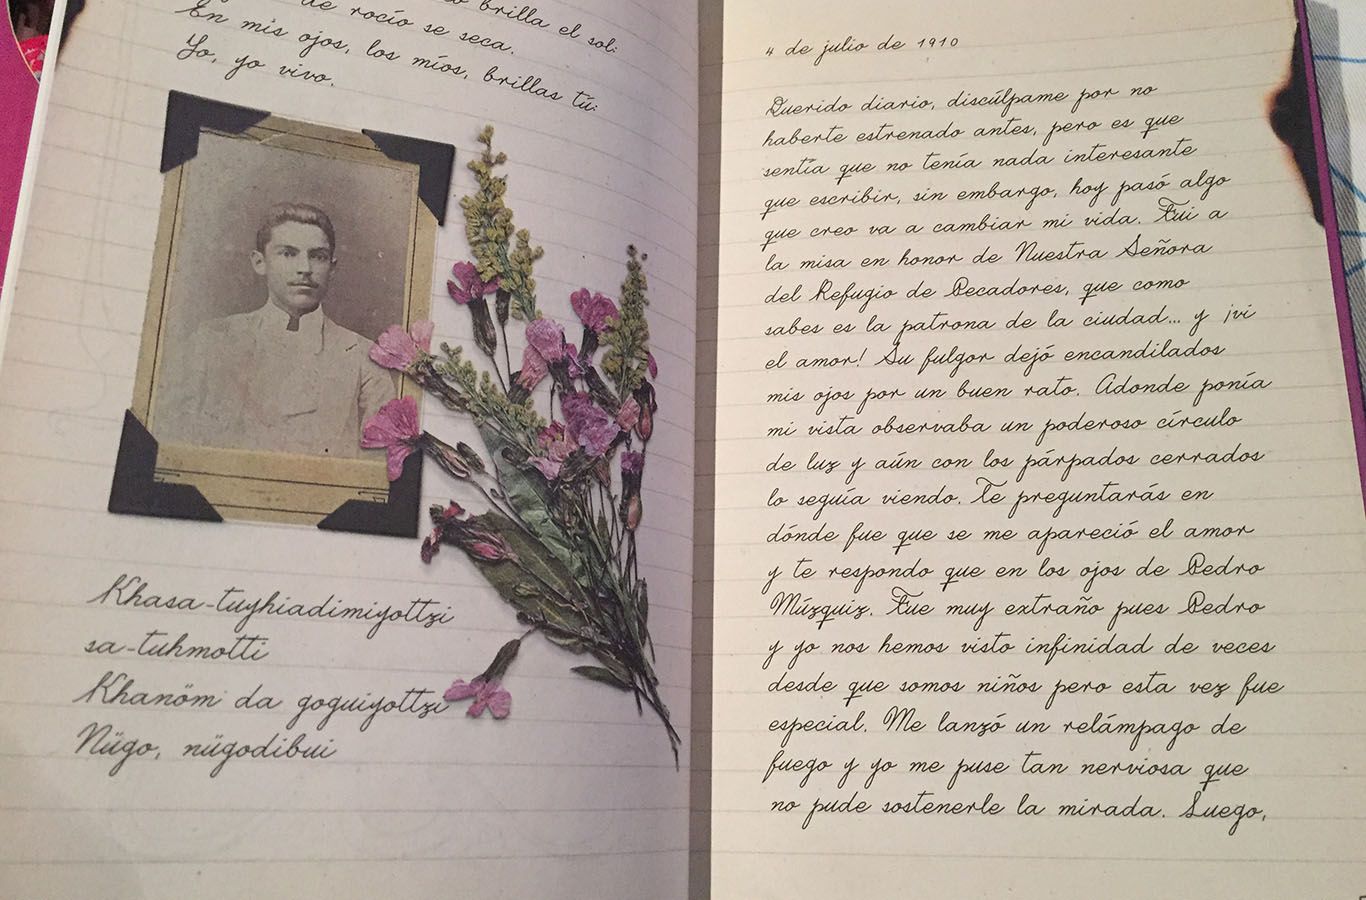 brilla el sol:
de rocío se seca.
En mis ojos, los míos, brillas tú:
Yo, yo vivo.
Khasa-tuyhiadimiyottzi
sa-tuhmotti
Khanöm da goguiyottzi
Nügo, nügodibui
4 de julio de 1910
Querido diario, discúlpame por no
haberte estrenado antes, pero es que
sentía que no tenía nada interesante
que escribir, sin embargo, hoy pasó algo
que creo va a cambiar mi vida. Fui a
la misa en honor de Nuestra Señora
del Refugio de Pecadores, que como
sabes es la patrona de la ciudad... y ¡vi
el amor! Su fulgor dejó encandilados
mis ojos por un buen rato. Adonde ponía
mi vista observaba un poderoso círculo
de luz y aún con los párpados cerrados
lo seguía viendo. Te preguntarás en
dónde fue que se me apareció el amor
y te respondo que en los ojos de Pedro
Múzquiz. Fue muy extraño pues Pedro
y yo nos hemos visto infinidad de veces
desde que somos niños pero esta vez fue
especial. Me lanzó un relámpago de
fuego y yo me puse tan nerviosa que
no pude sostenerle la mirada. Luego,